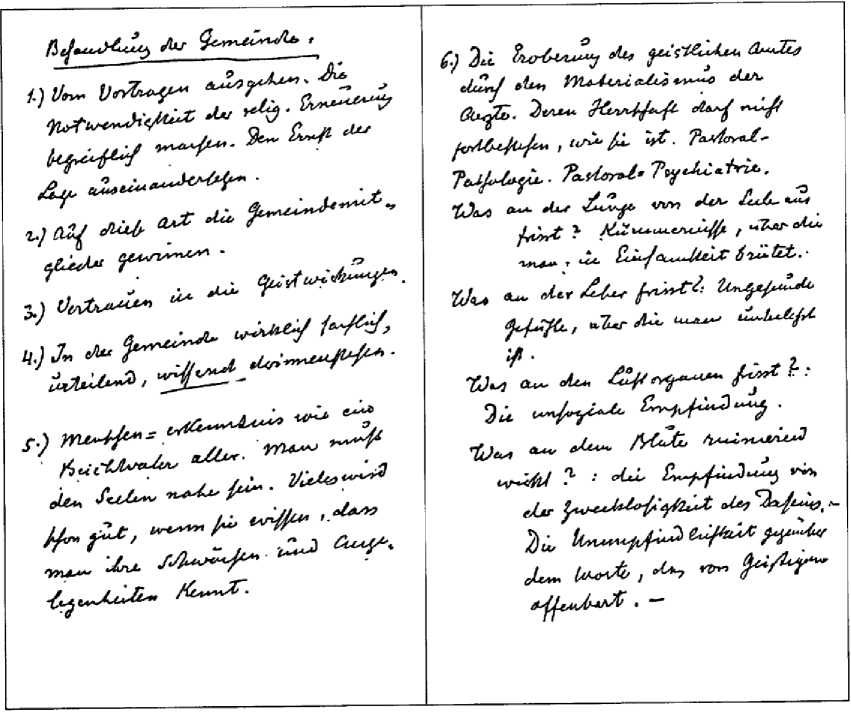 Behandlung der Gemeinde:
1.) Vom Vortragen ausgehen. Die
Notwendigkeit der relig. Erneuerung
begreiflich machen. Den Ernst der
Lage auseinanderlegen.
2.) Auf diese Art die Gemeindemit-
glieder gewinnen.
3.) Vertrauen in die Geistwirkungen.
4.) In der Gemeinde wirklich sachlich,
urteilend, wissend drinnenstehen.
5.) Menschen=erkenntnis wie ein
Beichtvater aller. Man muß
den Seelen nahe sein. Vieles wird
schon gut, wenn sie wissen, dass
man ihre Schwächen und Ange-
legenheiten kennt.
6.) Die Eroberung des geistlichen Amtes
durch den Materialismus der
Aerzte. Deren Herrschaft darf nicht
fortbestehen, wie sie ist. Pastoral-
Pathologie. Pastoral-Psychiatrie.
Was an der Lunge von der Seele aus
frisst? Kümmernisse, über die
man in Einsamkeit brütet.
Was an der Leber frisst?: Ungesunde
Gefühle, über die man unbelehrt
ist.
Was an den Luftorganen frisst?:
Die unsoziale Empfindung.
Was an dem Blute ruinierend
wirkt?: die Empfindung von
der Zwecklosigkeit des Daseins. –
Die Unempfindlichkeit gegenüber
dem Worte, das von Geistigem
offenbart. –